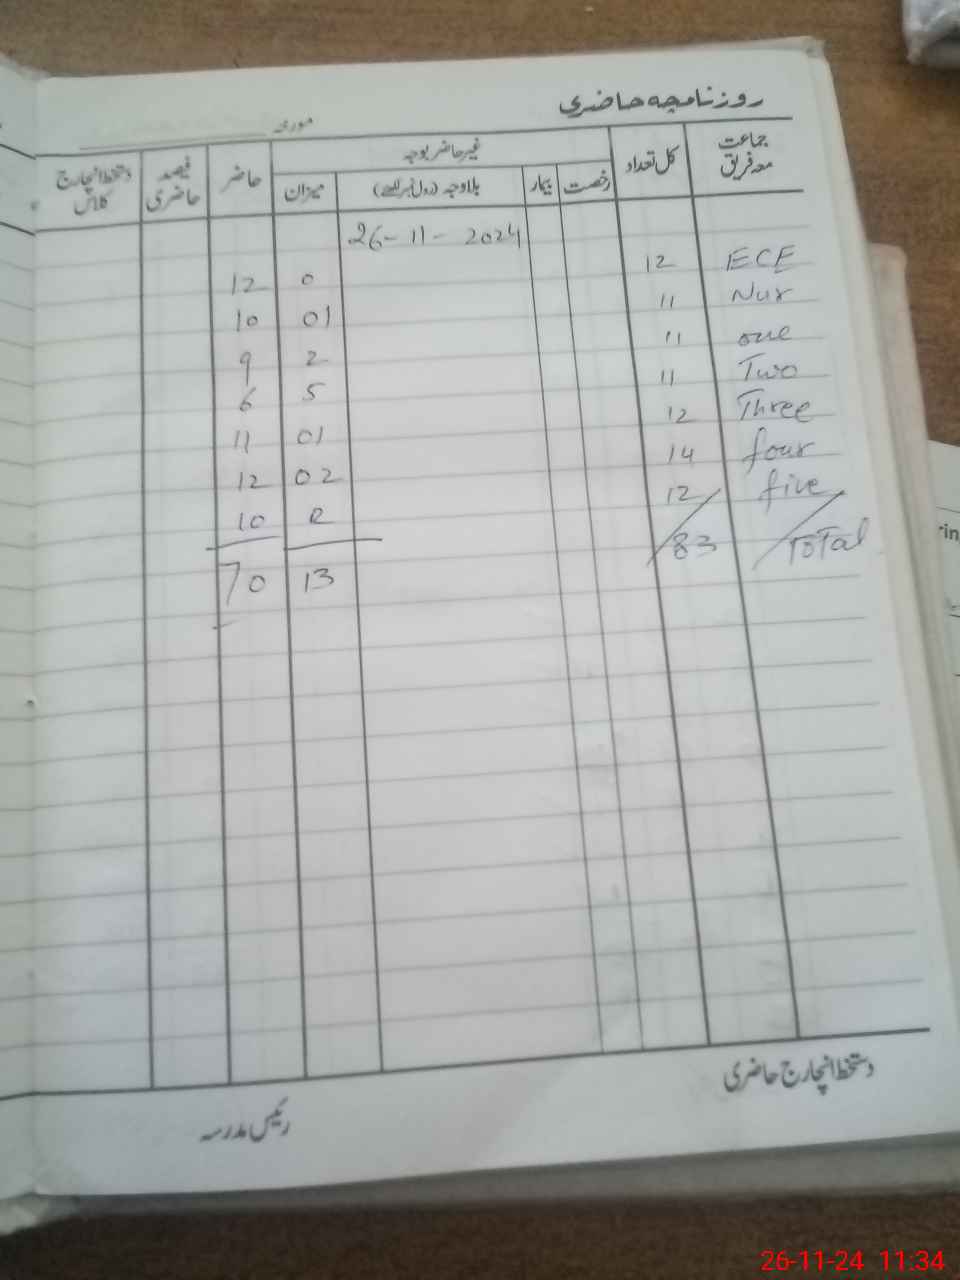 روزنامچہ حاضری
مورخہ
جماعت معہ فریق کل تعداد غیر حاضر بوجہ حاضر فیصد حاضری دستخط انچارج کلاس
رخصت بیمار بلاوجہ (رول نمبر لکھئے) میزان
26-11-2024
ECE 12 0 12
Nur 11 01 10
one 11 2 9
Two 11 5 6
Three 12 01 11
four 14 02 12
five 12 2 10
Total 83 13 70
دستخط انچارج حاضری
رئیس مدرسہ
26-11-24 11:34